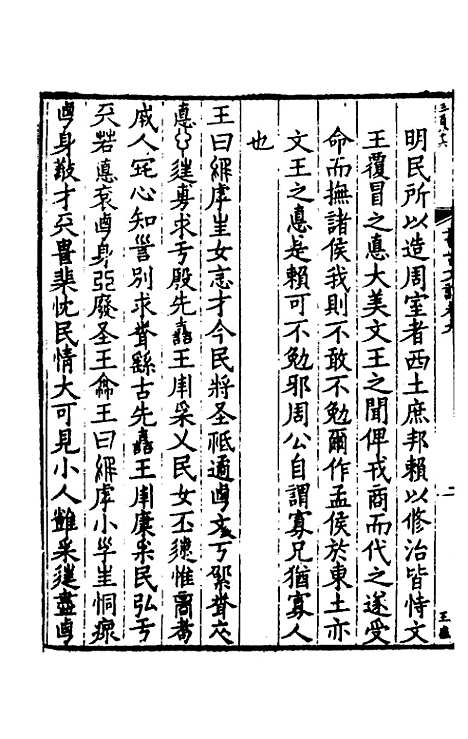 書古文訓卷九
二
明民所以造周室者西土庶邦賴以修治皆恃文
王覆冒之悳大美文王之聞俾戎商而代之遂受
命而撫諸侯我則不敢不勉爾作孟侯於東土亦
文王之悳是賴可不勉邪周公自謂寡兄猶寡人
也
王曰虖女忘才今民將圣祗遹文丂衣
悳求亏殷先嚞王用采乂民女丕惟耇
成人宅心知別求繇古先嚞王用康采民弘亏
兲若悳身廢圣王命王曰虖小恫瘝
身敬才兲畏棐忱民情大可見小人難采盡